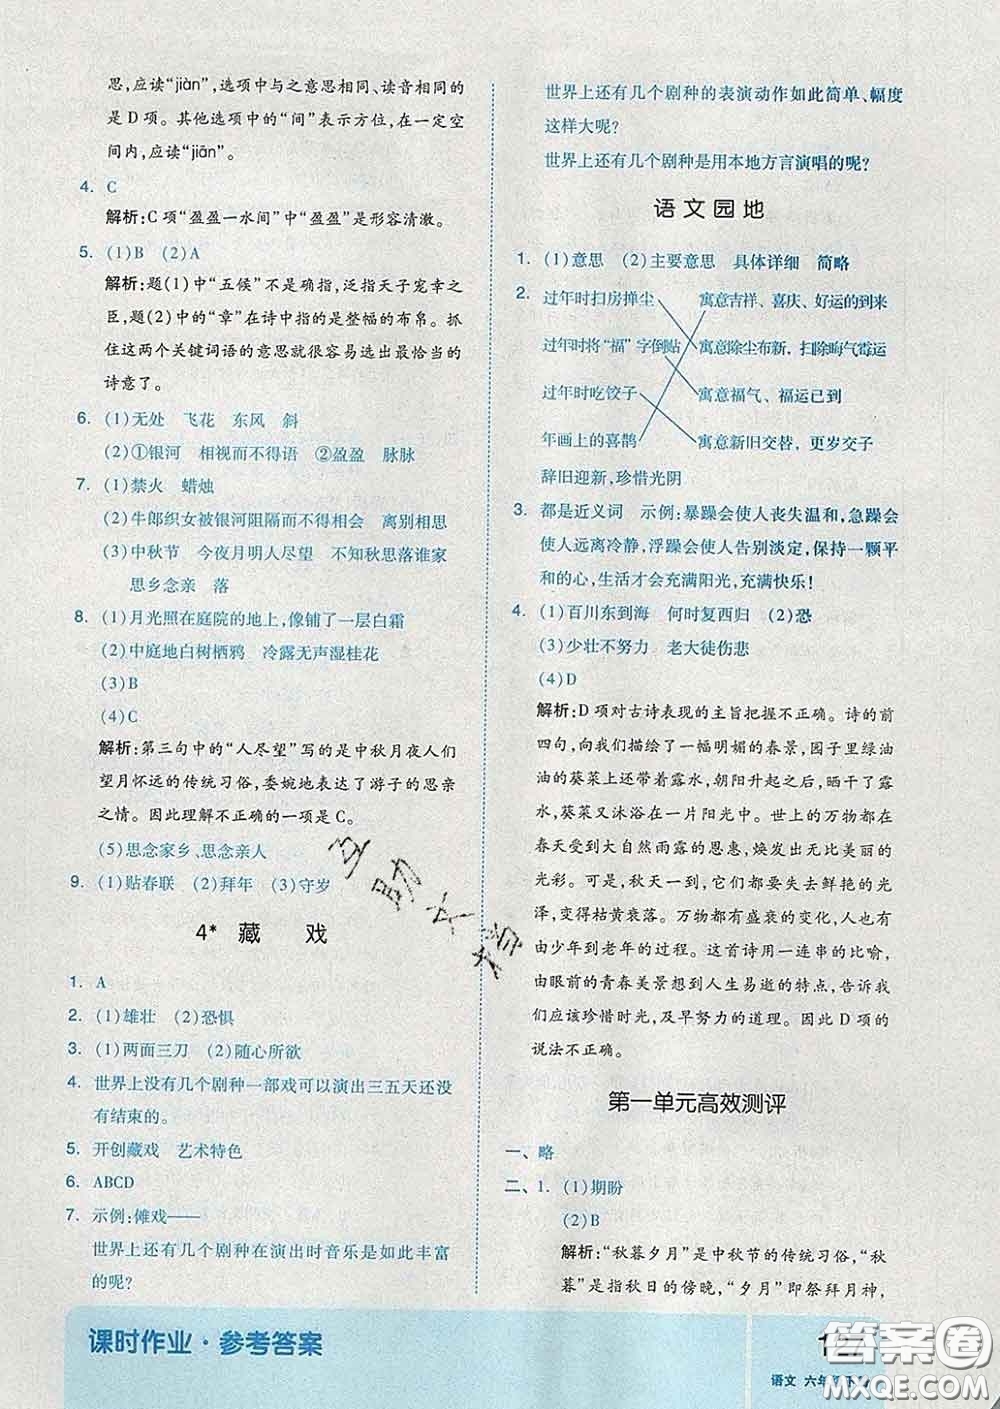 思,应读“jiàn”,选项中与之意思相同、读音相同的
是 D 项。其他选项中的“间”表示方位,在一定空
间内,应读“jiān”。
4. C
解析:C 项“盈盈一水间”中“盈盈”是形容清澈。
5. (1)B (2)A
解析:题(1)中“五候”不是确指,泛指天子宠幸之
臣,题(2)中的“章”在诗中指的是整幅的布帛。抓
住这两个关键词语的意思就很容易选出最恰当的
诗意了。
6. (1)无处 飞花 东风 斜
(2)①银河 相视而不得语 ②盈盈 脉脉
7. (1)禁火 蜡烛
(2)牛郎织女被银河阻隔而不得相会 离别相思
(3)中秋节 今夜月明人尽望 不知秋思落谁家
思乡念亲 落
8. (1)月光照在庭院的地上,像铺了一层白霜
(2)中庭地白树栖鸦 冷露无声湿桂花
(3)B
(4)C
解析:第三句中的“人尽望”写的是中秋月夜人们
望月怀远的传统习俗,委婉地表达了游子的思亲
之情。因此理解不正确的一项是 C。
(5)思念家乡、思念亲人
9. (1)贴春联 (2)拜年 (3)守岁
4* 藏 戏
1. A
2. (1)雄壮 (2)恐惧
3. (1)两面三刀 (2)随心所欲
4. 世界上没有几个剧种一部戏可以演出三五天还没
有结束的。
5. 开创藏戏 艺术特色
6. ABCD
7. 示例:傩戏——
世界上还有几个剧种在演出时音乐是如此丰富
的呢?
世界上还有几个剧种的表演动作如此简单、幅度
这样大呢?
世界上还有几个剧种是用本地方言演唱的呢?
语文园地
1. (1)意思 (2)主要意思 具体详细 简略
2. 过年时扫房掸尘 寓意吉祥、喜庆、好运的到来
过年时将“福”字倒贴 寓意除尘布新,扫除晦气霉运
过年时吃饺子 寓意福气、福运已到
年画上的喜鹊 寓意新旧交替,更岁交子
辞旧迎新,珍惜光阴
3. 都是近义词 示例:暴躁会使人丧失温和,急躁会
使人远离冷静,浮躁会使人告别淡定,保持一颗平
和的心,生活才会充满阳光,充满快乐!
4. (1)百川东到海 何时复西归 (2)恐
(3)少壮不努力 老大徒伤悲
(4)D
解析:D 项对古诗表现的主旨把握不正确。诗的前
四句,向我们描绘了一幅明媚的春景,园子里绿油
油的葵菜上还带着露水,朝阳升起之后,晒干了露
水,葵菜又沐浴在一片阳光中。世上的万物都在
春天受到大自然雨露的恩惠,焕发出无比美丽的
光彩。可是,秋天一到,它们都要失去鲜艳的光
泽,变得枯黄衰落。万物都有盛衰的变化,人也
有由少年到老年的过程。这首诗用一连串的比喻,
由眼前的青春美景想到人生易逝的特点,告诉我
们应该珍惜时光,及早努力的道理。因此 D 项的
说法不正确。
第一单元高效测评
一、略
二、1. (1)期盼
(2)B
解析:“秋暮夕月”是中秋节的传统习俗,“秋
暮”是指秋日的傍晚,“夕月”即祭拜月神,
互助文档
课时作业·参考答案
语文 六年
答案圈
MXQE.COM